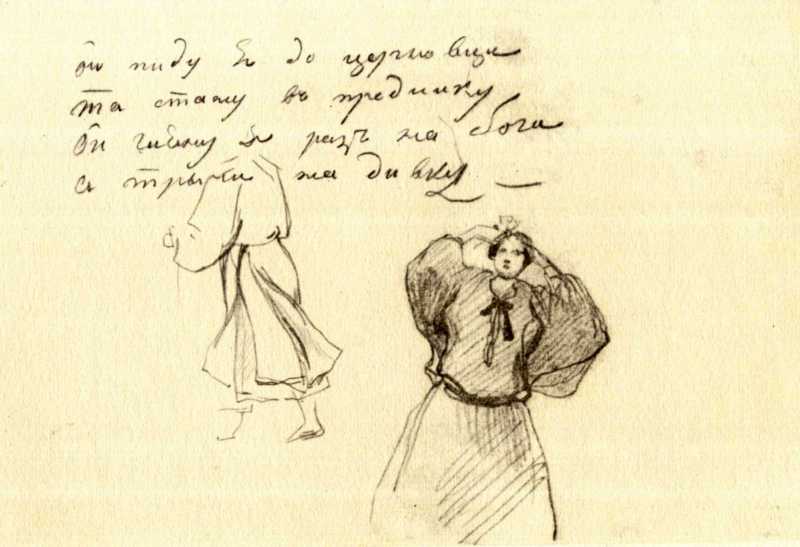 ой пиду я до церковци
та стану въ предилку
Ой гляну я разъ на бога
а трычи на дивку —